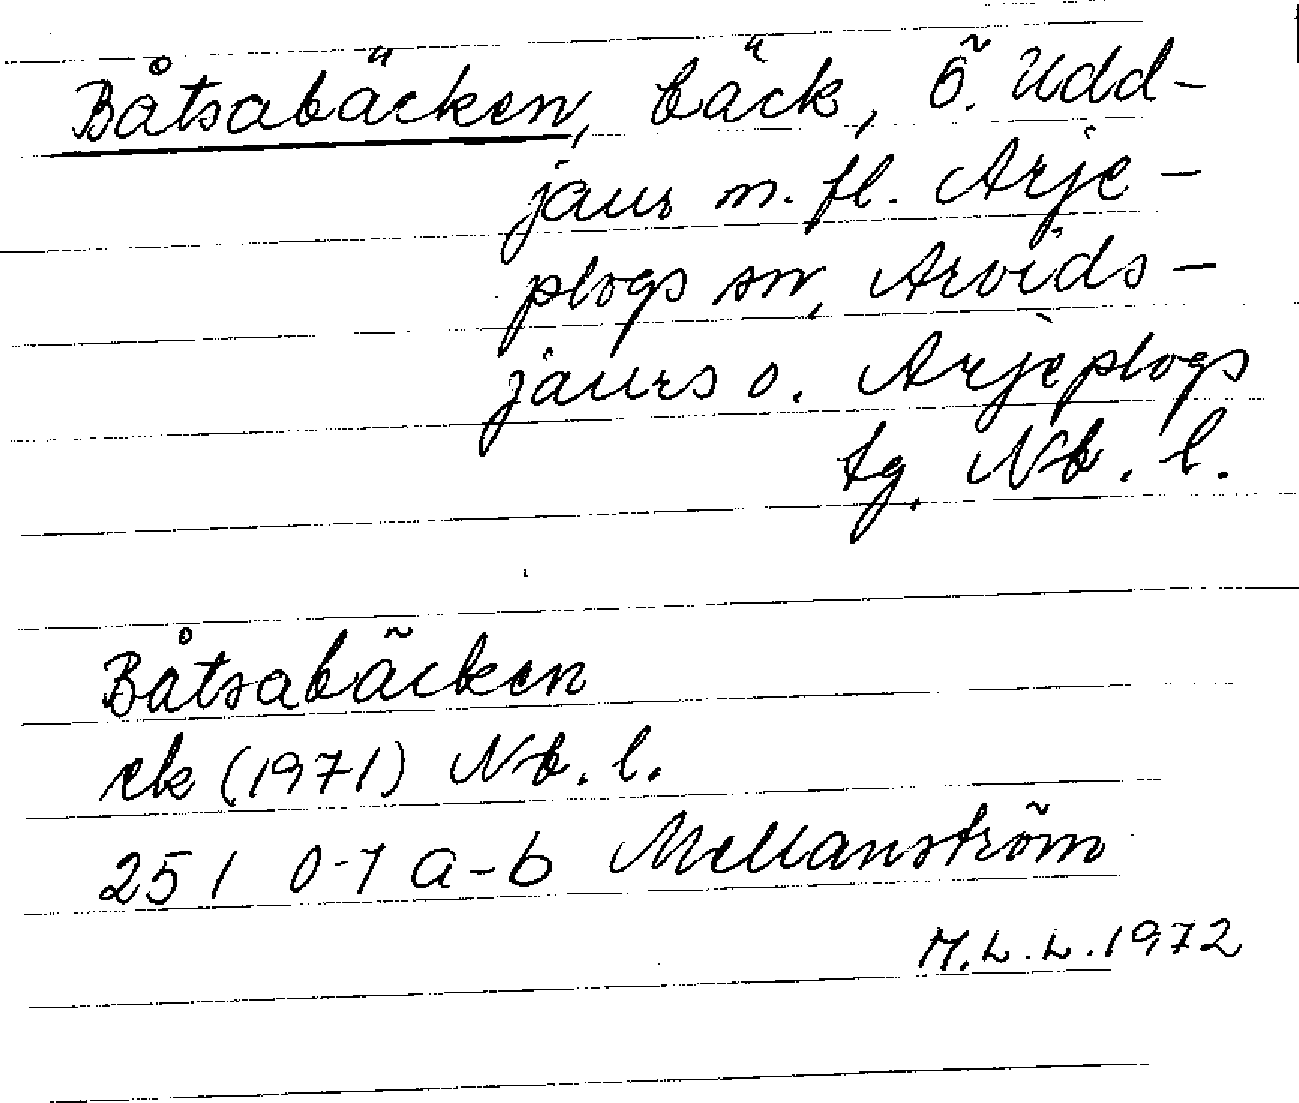 Båtsabäcken, bäck, Ö. Udd-
jaur m. fl. Arje-
plogs sn, Arvids-
jaurs o. Arjeplogs
tg. Nb. l.
Båtsabäcken
ek (1971) Nb. l.
25 I 0-1 a-b Mellanström
M.L.L. 1972